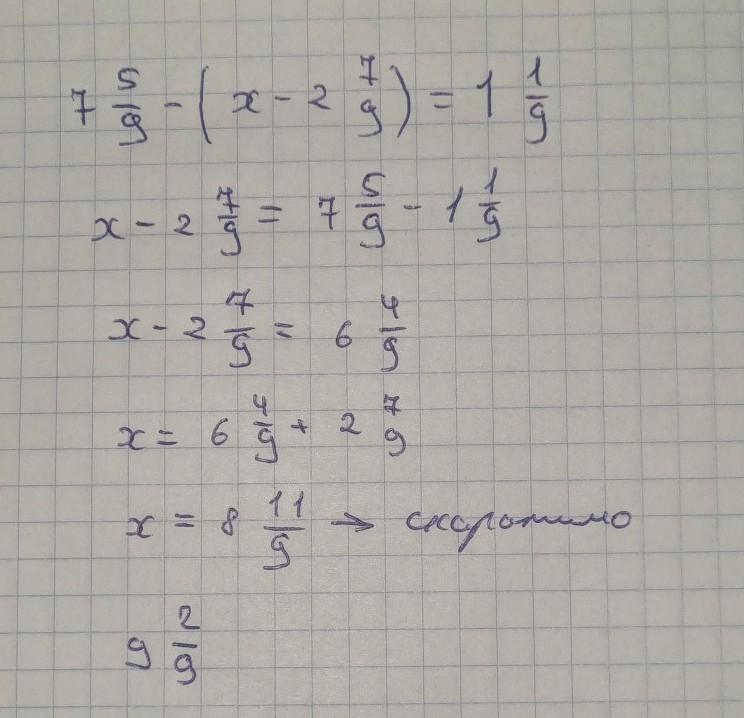 7 5/9 - (x - 2 7/9) = 1 1/9
x - 2 7/9 = 7 5/9 - 1 1/9
x - 2 7/9 = 6 4/9
x = 6 4/9 + 2 7/9
x = 8 11/9 → скоротимо
9 2/9